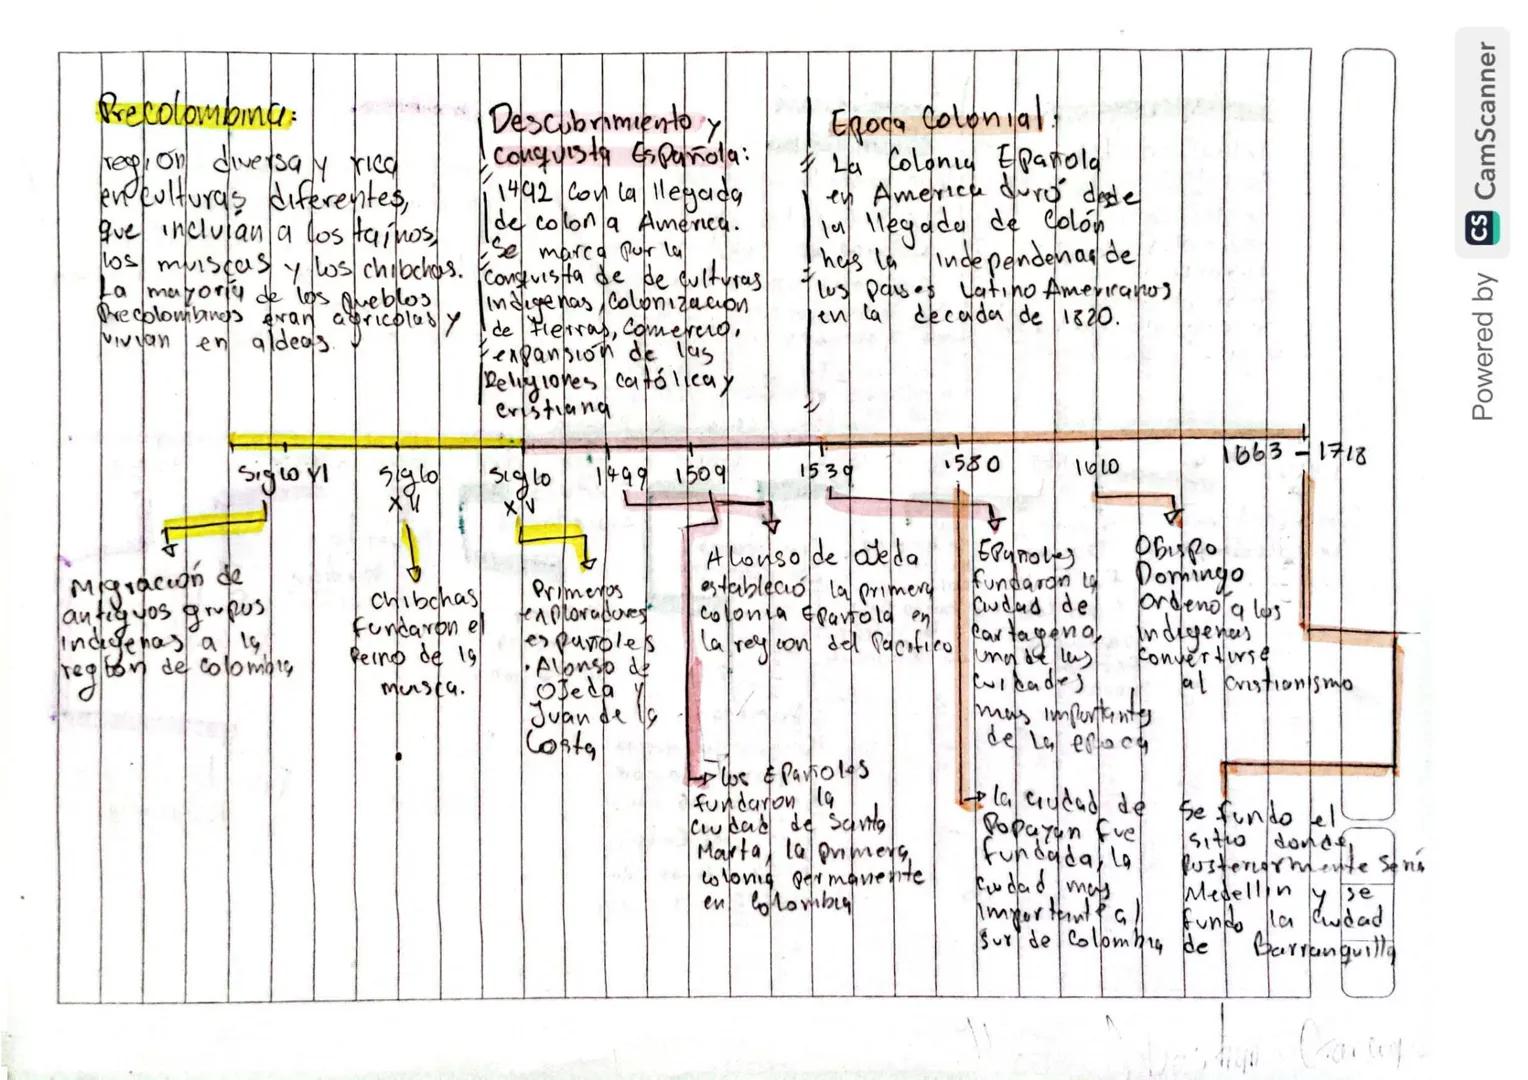 Precolombina:
región diversa y rica
en culturas diferentes,
que incluian a los taínos,
los muiscas y los chibchas.
La mayoría de los pueblos
Precolombinos eran agricolas y
vivian en aldeas.
Descubrimiento y
conquista Española:
1492 Con la llegada
de colon a América.
Se marca por la
conquista de de culturas
indigenas, colonización
de tierras, comercio,
expansión de las
Religiones católica y
cristiana
Epoca Colonial:
La Colonia Epañola
en America duró desde
la llegada de Colón
has la independencia de
los paises Latino Americanos
en la decada de 1820.
Siglo VI
Siglo
XII
Siglo
XV
1499
1509
1539
1580
1610
1663 - 1718
Migración de
antiguos grupos
indigenas a la
región de Colombia
Chibchas
fundaron el
Reino de la
muisca.
Primeros
exploradores
españoles
. Alonso de
Ojeda y
Juan de la
Costa
Alonso de Ojeda
estableció la primera
colonia Española en
la region del Pacifico
los Epañoles
fundaron la
ciudad de Santa
Marta, la primera
colonia permanente
en Colombia
Epañoles
fundaron la
Ciudad de
Cartagena,
una de las
cuidades
mas importantes
de la epoca
la ciudad de
Popayan fue
fundada, la
ciudad mas
importante al
sur de Colombia
Obispo
Domingo
Ordenó a los
indigenas
convertirse
al Cristianismo
Se fundo el
sitio donde,
Posteriormente Seria
Medellin y se
fundo la ciudad
de Barranquilla
Powered by CS CamScanner